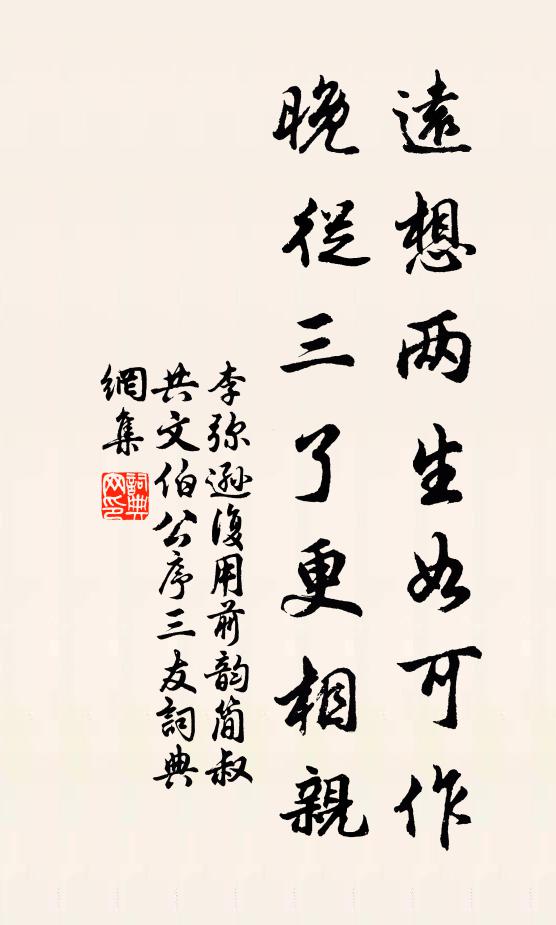 遠想两生如可作
晚從三了更相親
李弥遜復用前韵简叔
共文伯公序三友詞典
網集
詞典网印